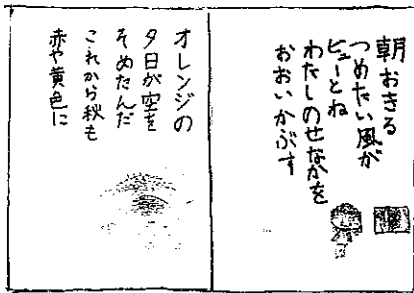 朝おきる
つめたい風が
ビューとね
わたしのせなかを
おおいかぶす
オレンジの
夕日が空を
そめたんだ
これから秋も
赤や黄色に